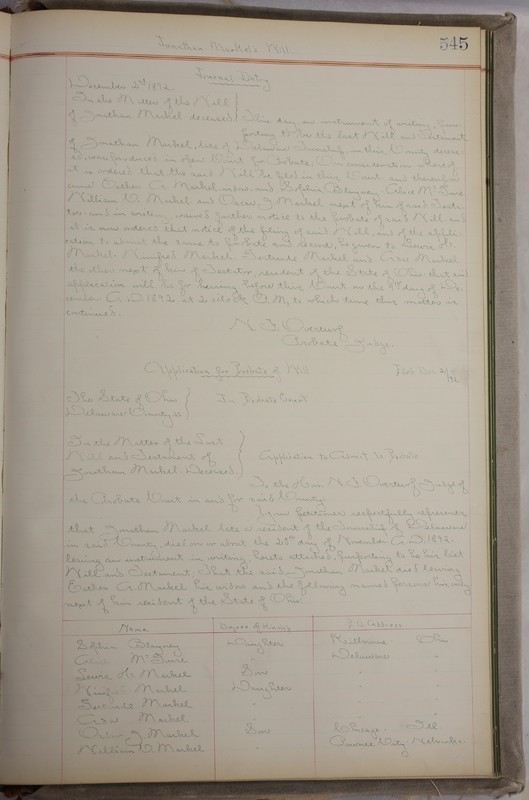 Jonathan Markel's Will
545
Journal Entry
December 2nd 1892.
In the Matter of the Will
of Jonathan Markel deceased } This day an instrument of writing, pur-
porting to be the last Will and Testament
of Jonathan Markel, late of Delaware Township in this County deceas-
ed, was produced in open Court for Probate. On consideration thereof
it is ordered that the said Will be filed in this Court and thereupon
came Esther A. Markel widow and Sophia Blayney, Alice McGuire
William V. Markel and Oscar J. Markel next of kin of said Testa-
tor and in writing waived further notice to the Probate of said Will and
it is now ordered that notice of the filing of said Will, and of the appli-
cation to admit the same to probate and record, be given to
Markel, Winifred Markel Gertrude Markel and Markel
the other next of kin of Testator, resident of the State of Ohio that said
application will be for hearing before this Court on the 9th day of De-
cember A.D. 1892 at 2 o'clock P.M. to which time this matter is
continued.
N. F. Overturf
Probate Judge.
Application for Probate of Will
Filed Dec 2/92
The State of Ohio }
Delaware County ss } In Probate Court
In the Matter of the Last
Will and Testament of
Jonathan Markel, Deceased } Application to Admit to Probate
To the Hon. N. F. Overturf Judge of
the Probate Court in and for said County:
Your Petitioner respectfully represents
that Jonathan Markel late a resident of the Township of Delaware
in said County, died on or about the 20th day of November A.D. 1892.
leaving an instrument in writing hereto attached, purporting to be his last
Will and Testament; That the said Jonathan Markel died leaving
Esther A. Markel his widow and the following named persons his only
next of kin resident of the State of Ohio.
Name Degree of Kinship P.O. Address
Sophia Blayney Daughter Ohio
Alice McGuire " Delaware "
Markel Son " "
Winifred Markel Daughter " "
Gertrude Markel " " "
Markel " " "
Oscar J. Markel Son Chicago Ill
William V. Markel " Pawnee City Nebraska